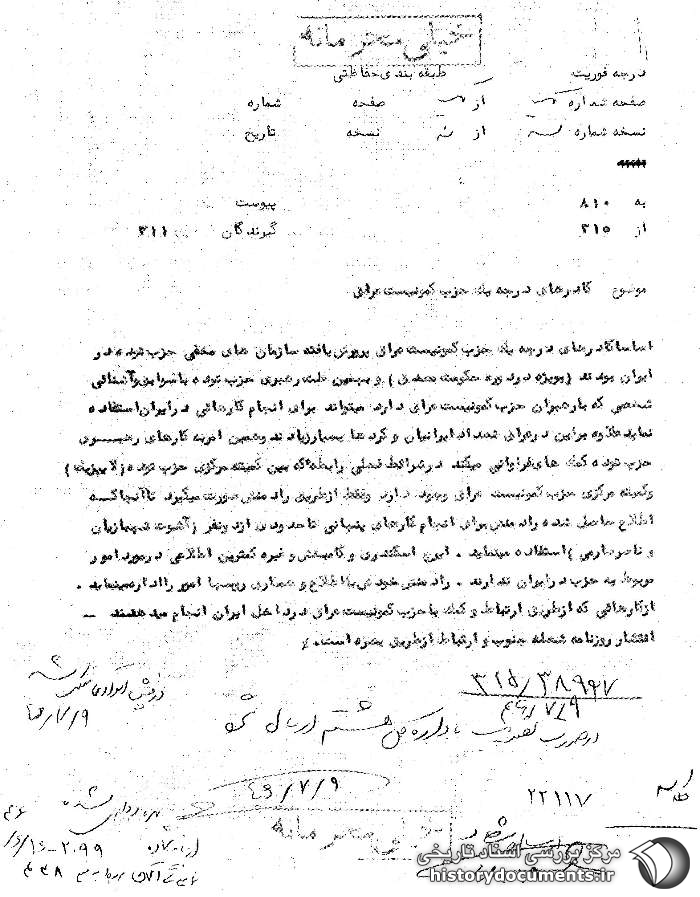 خیلی محرمانه
درجه فوریت طبقه بندی حفاظتی
صفحه شماره از صفحه شماره
نسخه شماره از نسخه تاریخ
به ۸۱۰ پیوست
از ۳۱۵ گیرندگان ۳۱۱
موضوع کادرهای درجه یک حزب کمونیست عراق
اساسا کادرهای درجه یک حزب کمونیست عراق پرورش یافته سازمان های مخفی حزب توده در
ایران بودند (بویژه در دوره حکومت مصدق) و بهمین علت رهبری حزب توده با سوابق و آشنائی
شخصی که با رهبران حزب کمونیست عراق دارد میتواند برای انجام کارهائی در ایران استفاده
نماید علاوه براین در عراق تعداد ایرانیان و کردها بسیار زیادند و همین امر به کارهای رهبری
حزب توده کمک های فراوانی میکند . در شرائط فعلی رابطه‌ای که بین کمیته مرکزی حزب توده (لایپزیک)
و کمیته مرکزی حزب کمونیست عراق وجود دارد فقط از طریق رادمنش صورت میگیرد تا آنجا که
اطلاع حاصل شده رادمنش برای انجام کارهای پنهانی تا حدودی از دو نفر (آشوت شهبازیان
و ناصر صارمی) استفاده مینماید . ایرج اسکندری و کامبخش و غیره کمترین اطلاعی در مورد امور
مربوط به حزب در ایران ندارند . رادمنش خودش با اطلاع و همکاری روسها امور را اداره مینماید .
از کارهائی که از طریق ارتباط و کمک با حزب کمونیست عراق در داخل ایران انجام میدهند –
انتشار روزنامه شعله جنوب و ارتباط از طریق بصره است .
۳۱۵/۳۸۹۶۷
۷/۹
در صورت تصویب به اداره کل هشتم ارسال شود
۴۳/۷/۹
۲۲۱۱۷
بهره برداری شد
خیلی محرمانه
مرکز بررسی اسناد تاریخی
historydocuments.ir